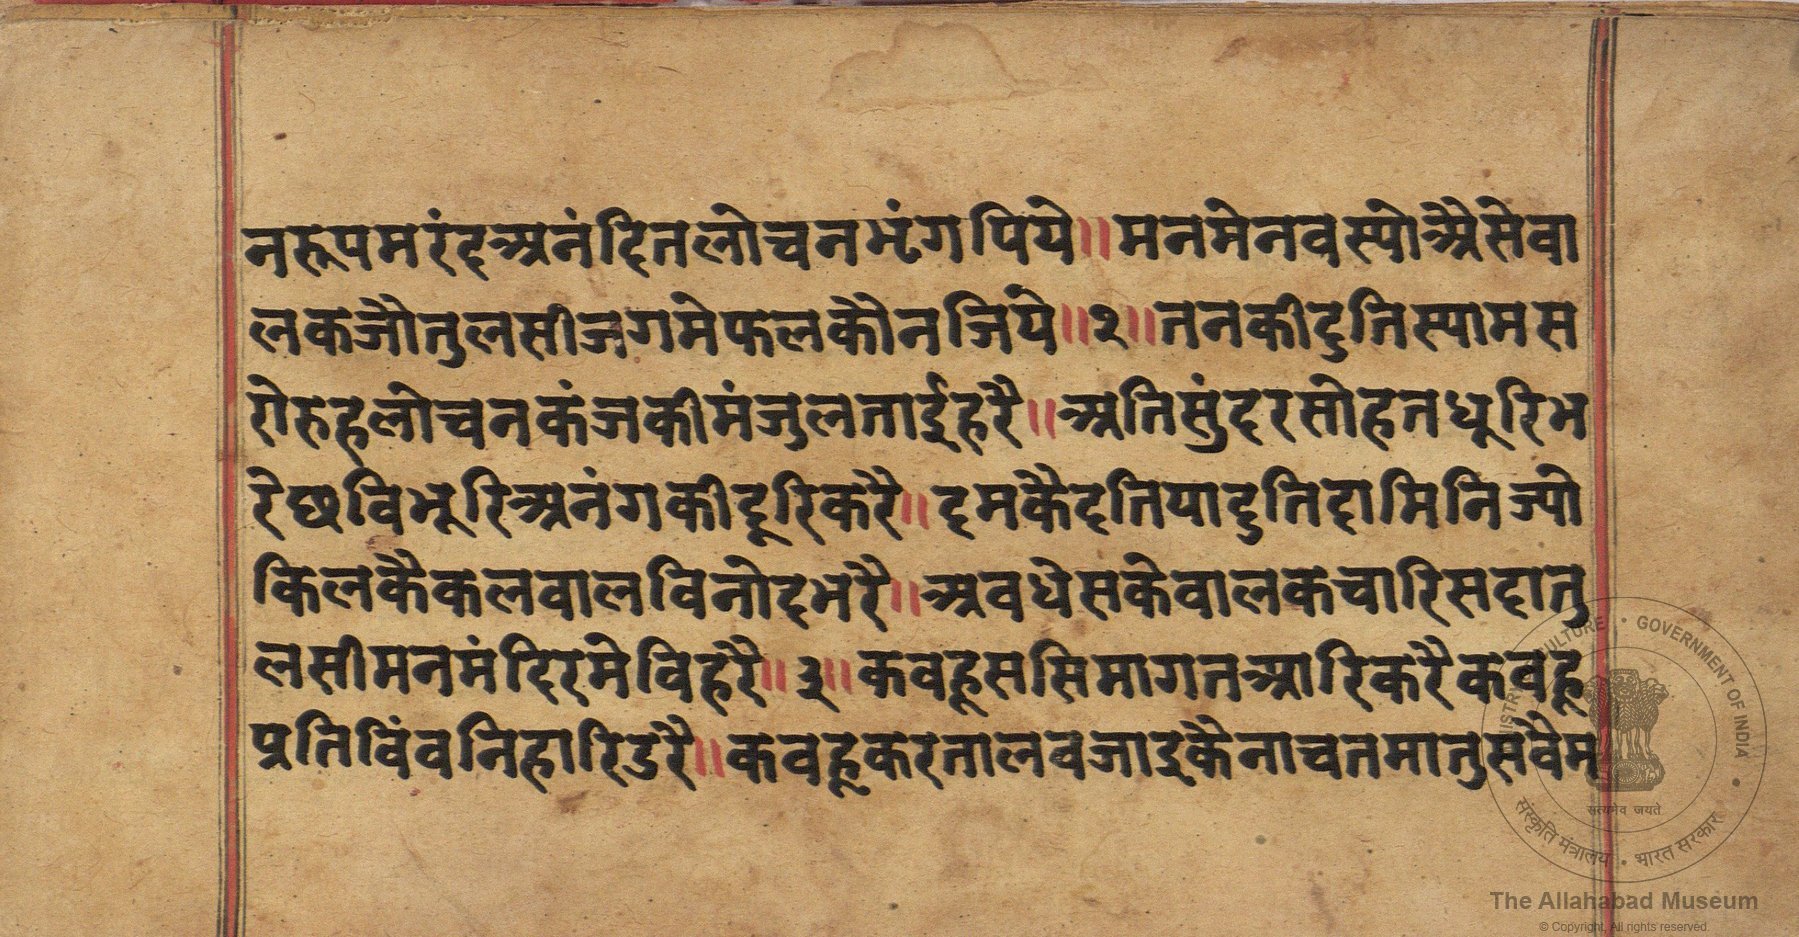 नरूपमरंदअनंदितलोचनभृंगपिये॥मनमेनवस्योअैसेवा
लकजौतुलसीजगमेफलकौनजिये॥२॥तनकीदुतिस्यामस
रोरुहलोचनकंजकीमंजुलताईहरै॥अतिसुंदरसोहतधूरिभ
रेछविभूरिअनंगकीदूरिकरै॥दमकैदतियादुतिदामिनिज्यो
किलकैकलवालविनोदभरै॥अवधेसकेवालकचारिसदातु
लसीमनमंदिरमेविहरै॥३॥कवहूससिमागतआरिकरैकवहू
प्रतिविंवनिहारिडरै॥कवहूकरतालवजाइकैनाचतमातुसवैम
MINISTRY OF CULTURE • GOVERNMENT OF INDIA
सत्यमेव जयते
संस्कृति मंत्रालय • भारत सरकार
The Allahabad Museum
© Copyright. All rights reserved.